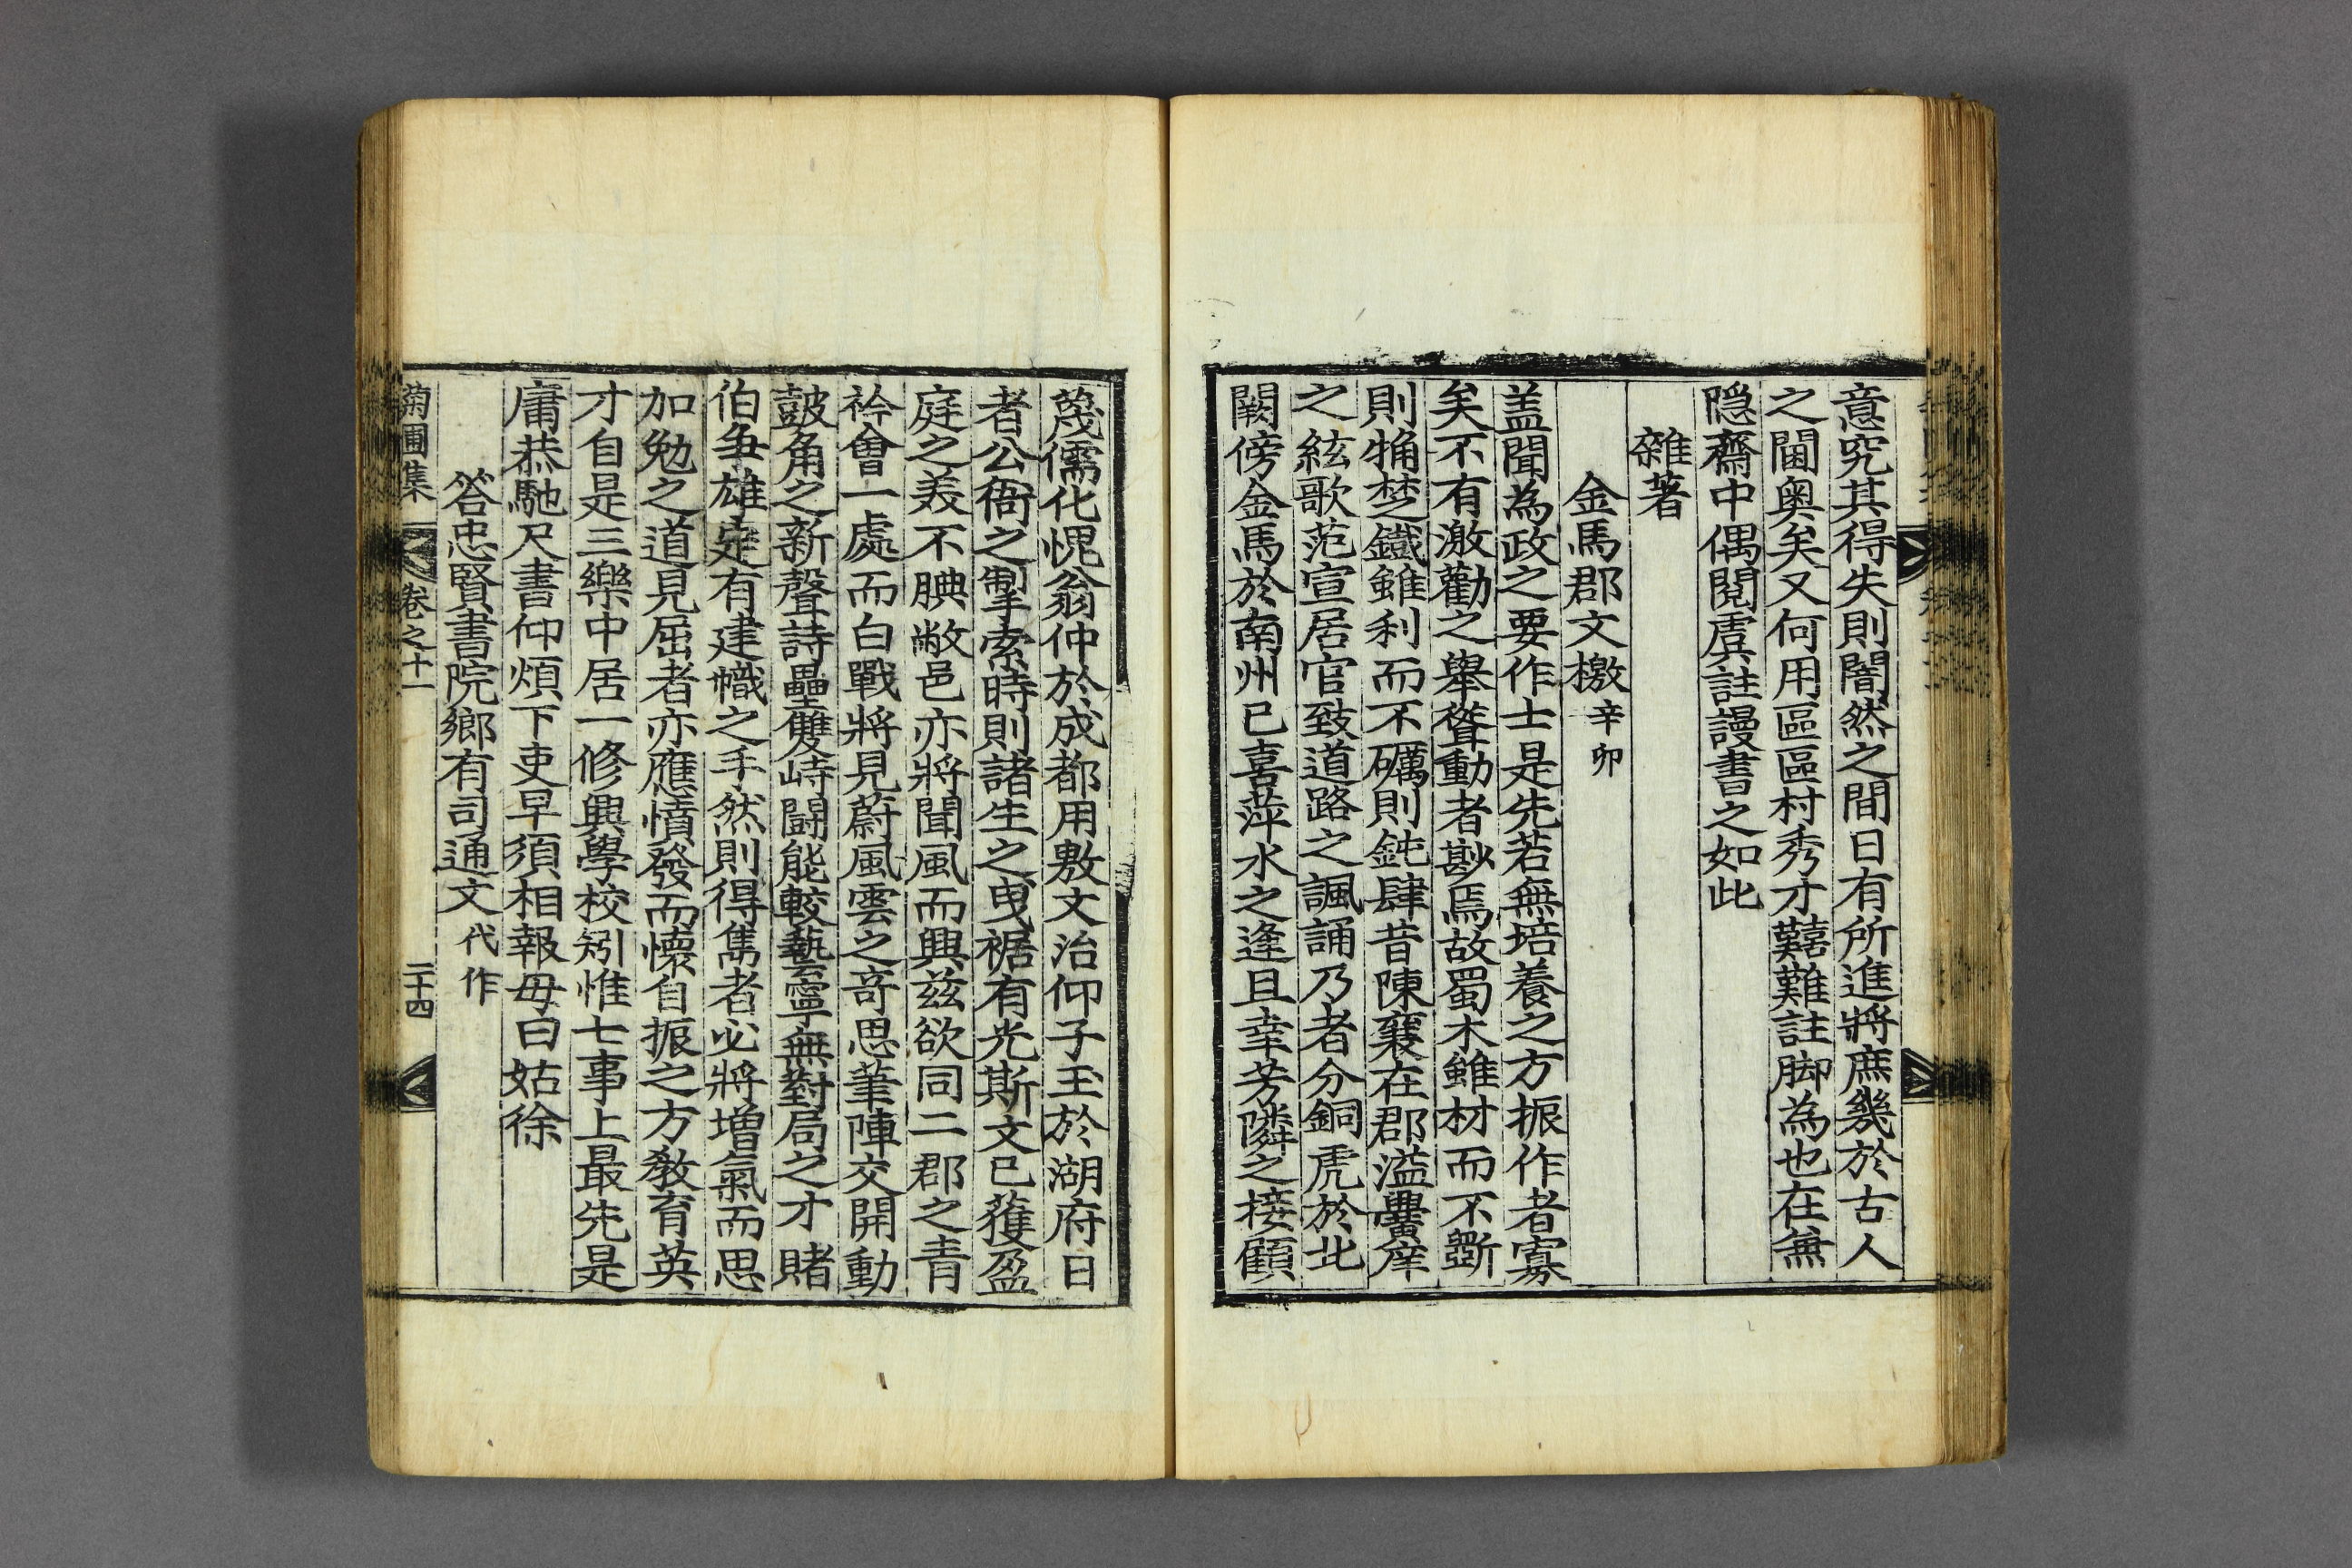 意究其得失則闇然之間日有所進將庶幾於古人
之閫奧矣又何用區區村秀才囏難註脚為也在無
隠齋中偶閱虞註謾書之如此
雜著
金馬郡文檄 辛卯
盖聞為政之要作士是先若無培養之方振作者寡
矣不有激勸之舉聳動者尠焉故蜀木雖材而不斲
則桷楚鐵雖利而不礪則鈍肆昔陳襄在郡溢黌庠
之絃歌范宣居官致道路之諷誦乃者分銅虎於北
闕傍金馬於南州已喜萍水之逢且幸芳隣之接顧
蔑儒化愧翁仲於成都用敷文治仰子玉於湖府日
者公衙之掣索時則諸生之曳裾有光斯文已蒦盈
庭之美不腆敝邑亦將聞風而興玆欲同二郡之青
衿會一處而白戰將見蔚風雲之奇思筆陣交開動
鼓角之新聲詩壘雙峙鬪能較藝寧無對局之才賭
伯爭雄定有建幟之手然則得雋者必將增氣而思
加勉之道見屈者亦應憤發而懷自振之方敎育英
才自是三樂中居一修興學校矧惟七事上最先是
庸恭馳尺書仰煩下吏早須相報毋曰姑徐
答忠賢書院鄕有司通文 代作
菊圃集 卷之十一 二十四